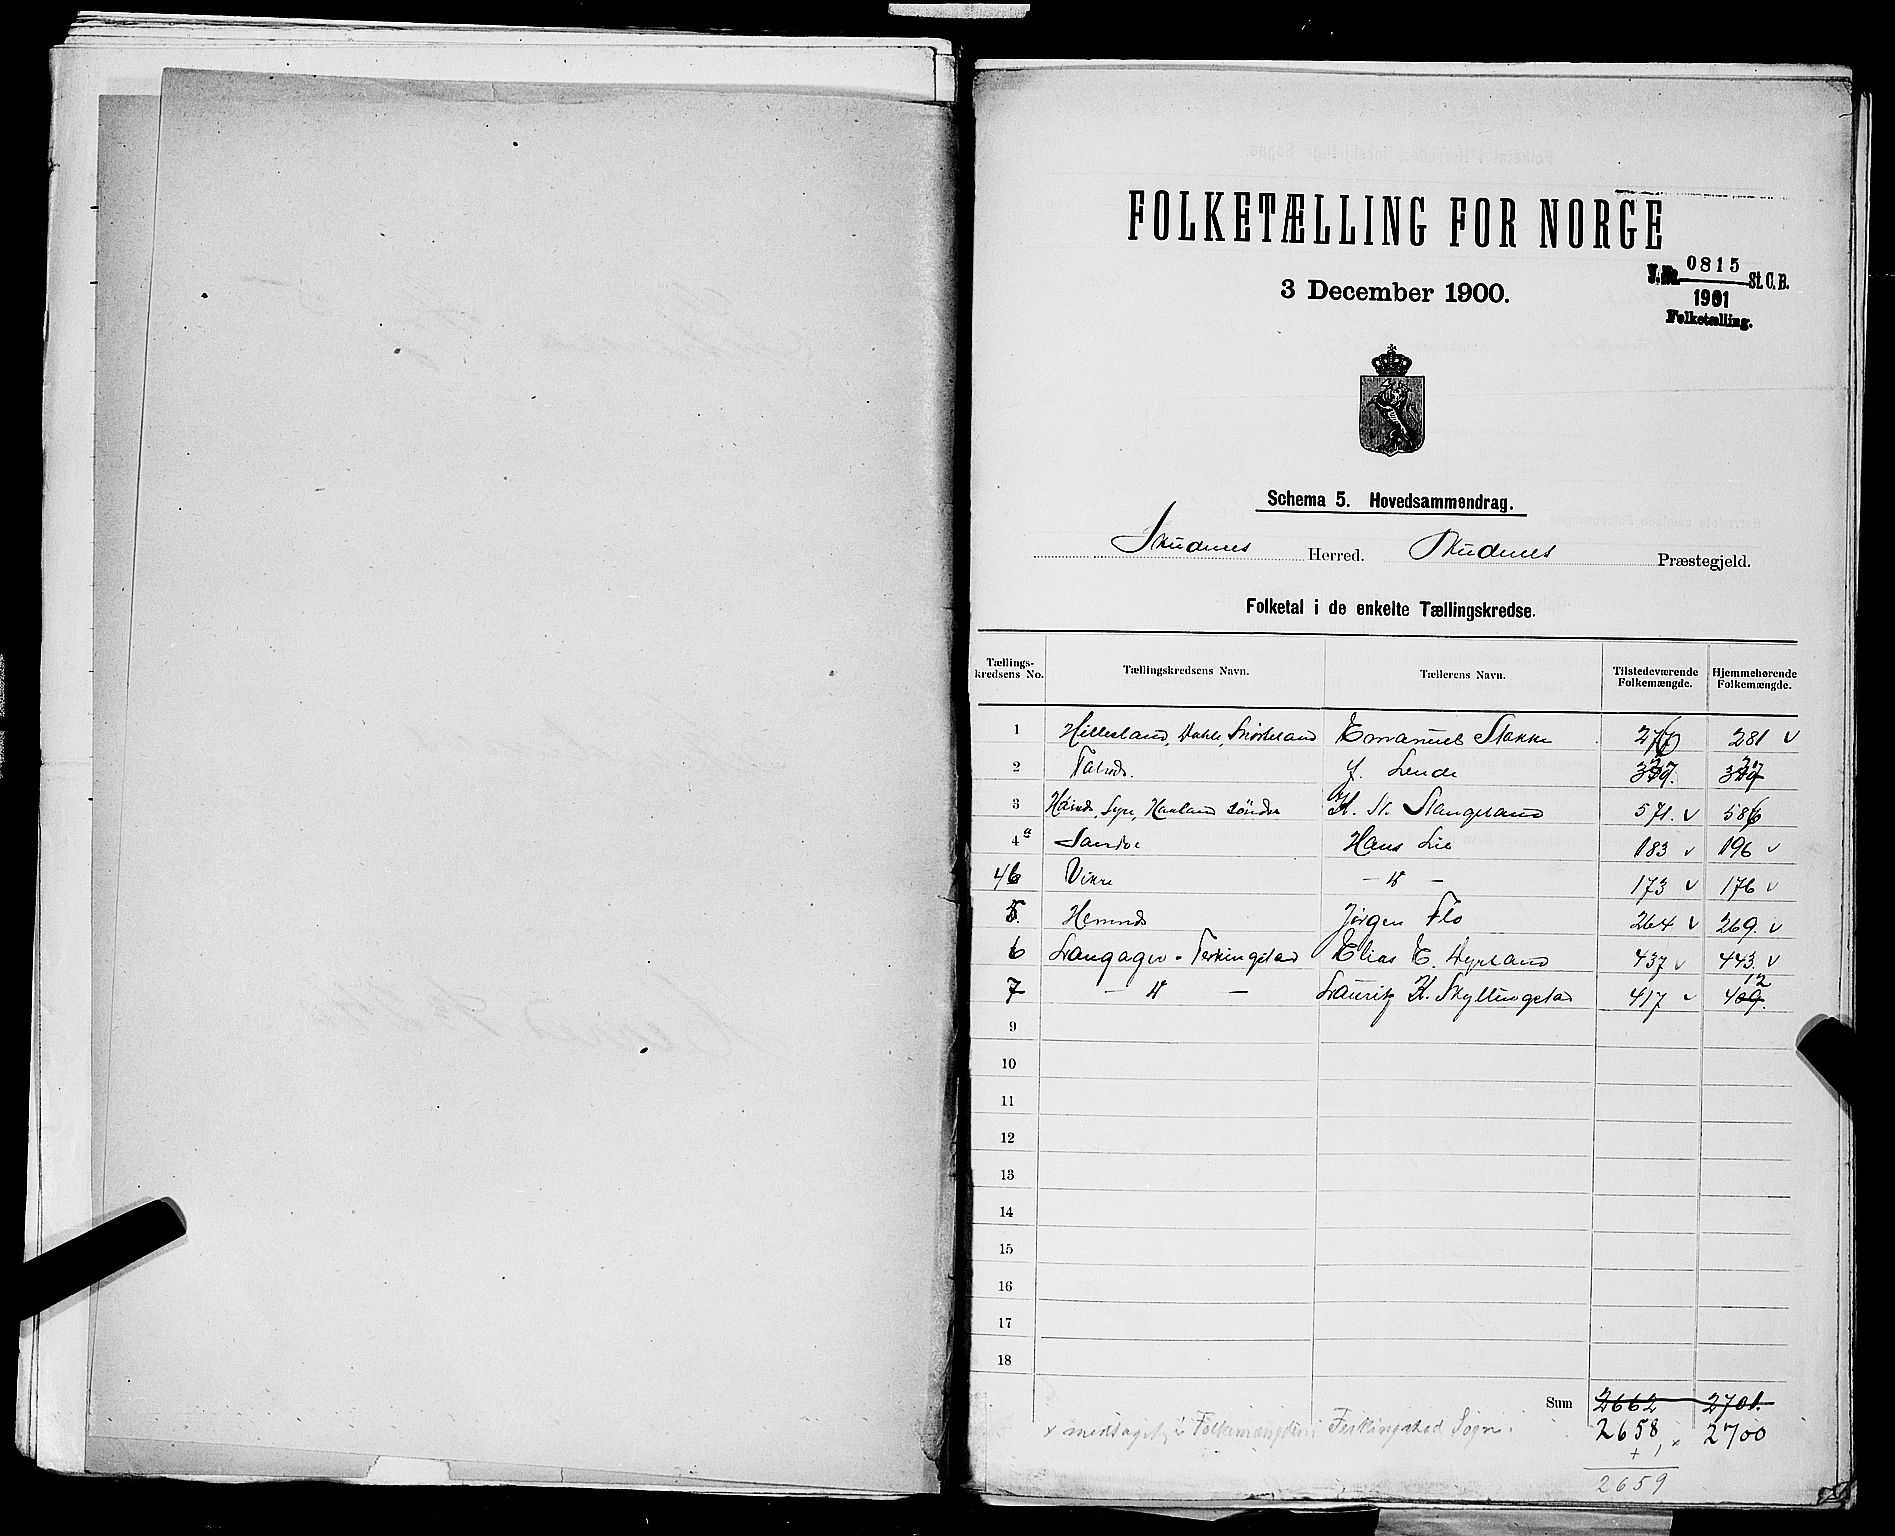 FOLKETÆLLING FOR NORGE
3 December 1900.
J.No. 0815 St. C. B.
1901
Folketælling.
Schema 5. Hovedsammendrag.
Skudenes Herred. Skudenes Præstegjeld.
Folketal i de enkelte Tællingskredse.
Tællings-kredsens No. Tællingskredsens Navn. Tællerens Navn. Tilstedeværende Folkemængde. Hjemmehørende Folkemængde.
1 Hillesland, Dahle, Emanuel Stakke 281 v
2 Falnds. J. Lende 337. 337
3 Hainds, Syre, Hauland søndre K. St. Stangeland 571. v 586
4a Sandve Hans Lie 183 v 196 v
4b Vikre — " — 173 v 176 v
5. Hemnds Jørgen Flo 264 v 269. v
6 Langager - Ferkingstad Elias E. Dyrland 437 v 443. v
7 — " — Lauritz K. Skyllingstad 417 v 412
9
10
11
12
13
14
15
16
17
18
Sum 2662 2701.
2658 2700
+ 1 x
x medtaget i Folkemængden i Ferkingstad Sogn.
2659